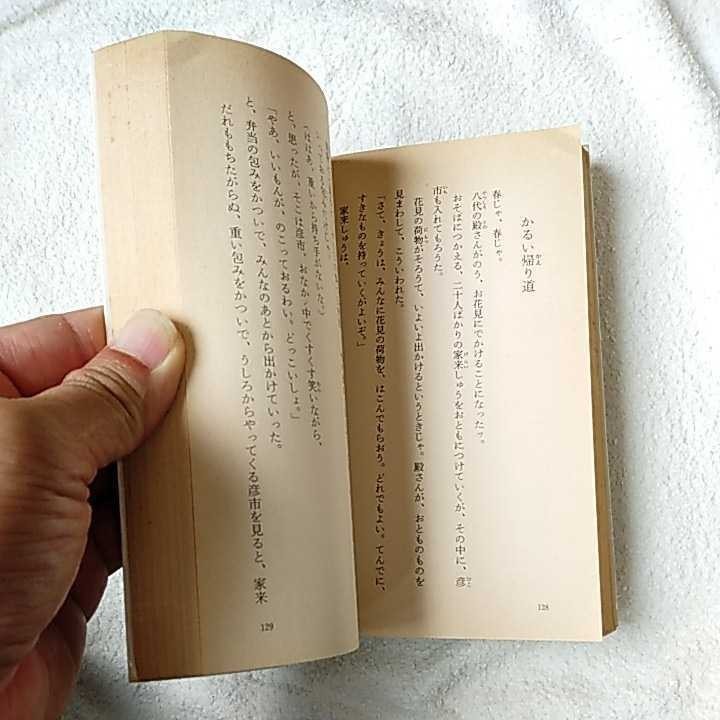 かるい帰り道
春じゃ、春じゃ。
八代の殿さんがのう、お花見にでかけることになったッ。
おそばにつかえる、二十人ばかりの家来しゅうをおともにつけていくが、その中に、彦
市も入れてもろうた。
花見の荷物がそろうて、いよいよ出かけるというときじゃ。殿さんが、おとものものを
見まわして、こういわれた。
「さて、きょうは、みんなに花見の荷物を、はこんでもらおう。どれでもよい。てんでに、
すきなものを持っていくがよいぞ。」
家来しゅうは、
128
「ははあ、重いから持ち手がないな。」
と、思ったが、そこは彦市、おなかン中でくすくす笑いながら、
「やあ、いいもんが、のこっておるわい。どっこいしょ。」
と、弁当の包みをかついで、みんなのあとから出かけていった。
だれももちたがらぬ、重い包みをかついで、うしろからやってくる彦市を見ると、家来
129